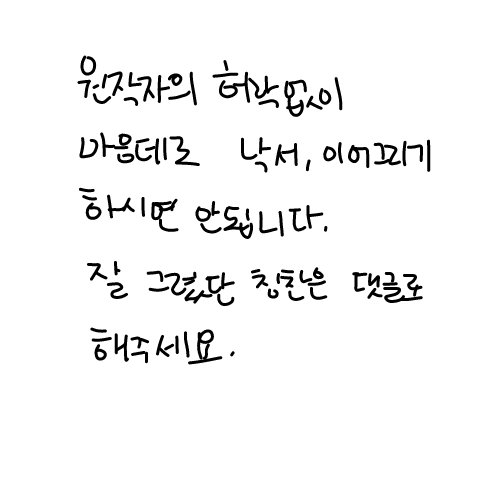 원작자의 허락없이
마음데로 낙서, 이어끄리기
하시면 안됩니다.
잘 그렸단 칭찬은 댓글로
해주세요.